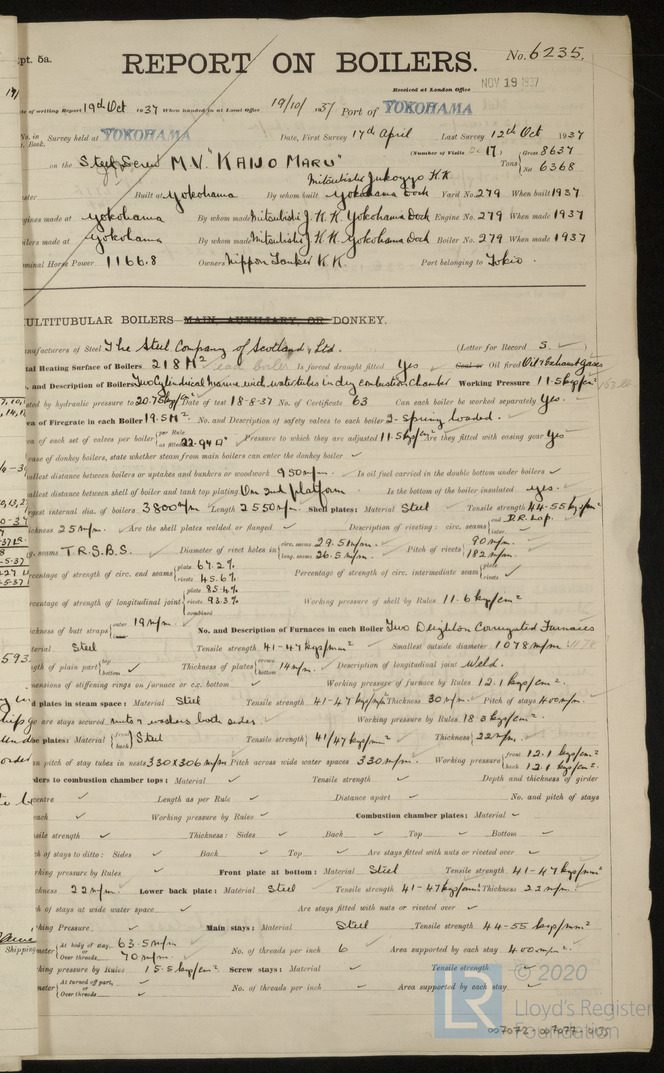 pt. 5a.
REPORT ON BOILERS.
No. 6235.
Received at London Office NOV 19 1937
te of writing Report 19th Oct 1937 When handed in at Local Office 19/10/1937 Port of YOKOHAMA
No. in Book. Survey held at YOKOHAMA Date, First Survey 17th April Last Survey 12th Oct 1937
(Number of Visits 17)
on the Steel Screw M.V. "KAIJO MARU" Tons Gross 8637 Net 6368
Mitsubishi Jukogyo K.K.
Built at Yokohama By whom built Yokohama Dock Yard No. 279 When built 1937
gines made at Yokohama By whom made Mitsubishi J.K.K. Yokohama Dock Engine No. 279 When made 1937
ilers made at Yokohama By whom made Mitsubishi J.K.K. Yokohama Dock Boiler No. 279 When made 1937
minal Horse Power 1166.8 Owners Nippon Tanker K.K. Port belonging to Tokio.
ULTITUBULAR BOILERS MAIN, AUXILIARY, OR DONKEY.
nufacturers of Steel The Steel Company of Scotland, Ltd. (Letter for Record S.)
tal Heating Surface of Boilers 218 M² each boiler Is forced draught fitted Yes Coal or Oil fired Oil & Exhaust Gases
. and Description of Boilers Two Cylindrical Marine with water tubes in dry combustion Chamber Working Pressure 11.5 kg/cm²
sted by hydraulic pressure to 20.75 kg/cm² Date of test 18-8-37 No. of Certificate 63 Can each boiler be worked separately Yes.
ea of Firegrate in each Boiler 19.5 M². No. and Description of safety valves to each boiler 2 - Spring loaded.
ea of each set of valves per boiler per Rule as fitted 22.94 Pressure to which they are adjusted 11.5 kg/cm² Are they fitted with easing gear Yes
ase of donkey boilers, state whether steam from main boilers can enter the donkey boiler ✓
allest distance between boilers or uptakes and bunkers or woodwork 950 m/m. Is oil fuel carried in the double bottom under boilers ✓
allest distance between shell of boiler and tank top plating On 2nd platform Is the bottom of the boiler insulated yes.
rgest internal dia. of boilers 3800 m/m Length 2550 m/m. Shell plates: Material Steel Tensile strength 44-55 kg/mm²
ickness 25 m/m. Are the shell plates welded or flanged ✓ Description of riveting: circ. seams end D.R. Lap. inter.
g. seams T.R.S.B.S. Diameter of rivet holes in circ. seams 29.5 m/m. long. seams 26.5 m/m. Pitch of rivets 90 m/m. 182 m/m.
rcentage of strength of circ. end seams plate 67.2% rivets 45.6% Percentage of strength of circ. intermediate seam plate rivets ✓
rcentage of strength of longitudinal joint plate 85.4% rivets 93.3% combined Working pressure of shell by Rules 11.6 kg/cm²
ickness of butt straps outer 19 m/m. inner No. and Description of Furnaces in each Boiler Two Deighton Corrugated Furnaces
terial Steel Tensile strength 41-47 kg/mm² Smallest outside diameter 1078 m/m
ngth of plain part top bottom ✓ Thickness of plates crown bottom 14 m/m. Description of longitudinal joint Weld.
mensions of stiffening rings on furnace or c.c. bottom ✓ Working pressure of furnace by Rules 12.1 kg/cm².
d plates in steam space: Material Steel Tensile strength 41-47 kg/mm² Thickness 30 m/m. Pitch of stays 400 m/m.
w are stays secured nuts & washers both sides. Working pressure by Rules 18.3 kg/cm².
be plates: Material front back Steel Tensile strength 41/47 kg/mm² Thickness 22 m/m.
an pitch of stay tubes in nests 330 x 306 m/m Pitch across wide water spaces 330 m/m. Working pressure front 12.1 kg/cm² back 12.1 kg/cm²
rders to combustion chamber tops: Material ✓ Tensile strength Depth and thickness of girder
centre ✓ Length as per Rule ✓ Distance apart ✓ No. and pitch of stays
each ✓ Working pressure by Rules ✓ Combustion chamber plates: Material ✓
sile strength ✓ Thickness: Sides ✓ Back ✓ Top ✓ Bottom ✓
ch of stays to ditto: Sides ✓ Back ✓ Top ✓ Are stays fitted with nuts or riveted over ✓
rking pressure by Rules ✓ Front plate at bottom: Material Steel Tensile strength 41-47 kg/mm²
ckness 22 m/m. Lower back plate: Material Steel Tensile strength 41-47 kg/mm² Thickness 22 m/m.
ch of stays at wide water space ✓ Are stays fitted with nuts or riveted over ✓
king Pressure ✓ Main stays: Material Steel Tensile strength 44-55 kg/mm²
meter At body of stay, or Over threads 63.5 m/m 70 m/m. No. of threads per inch 6 Area supported by each stay 400 m/m².
king pressure by Rules 15.5 kg/cm² Screw stays: Material ✓ Tensile strength
meter At turned off part, or Over threads ✓ No. of threads per inch ✓ Area supported by each stay ✓
© 2020
LR Lloyd's Register Foundation
007072-007077-0135